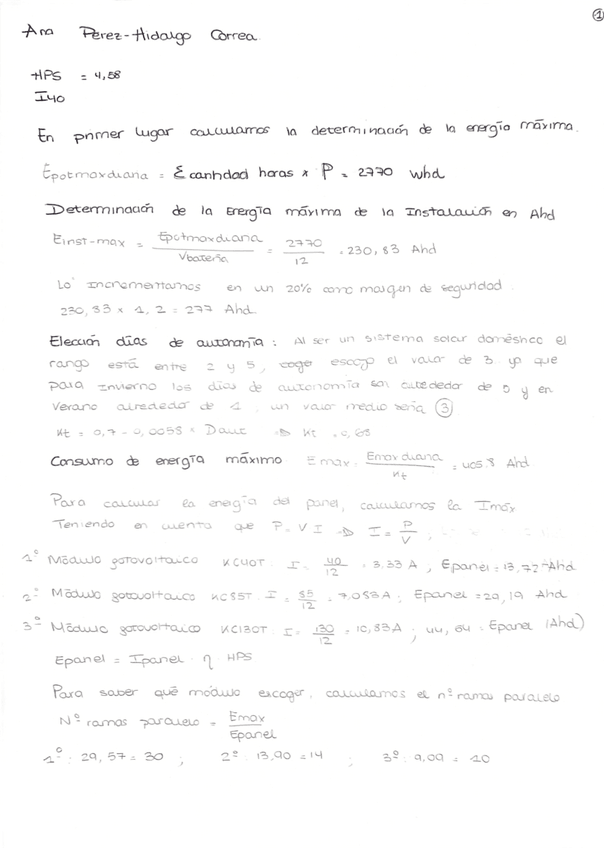 1
Ana Perez-Hidalgo Correa.
HPS = 4,58
I40
En primer lugar calculamos la determinación de la energía máxima.
Epotmaxdiaria = Σ cantidad horas x P = 2770 whd
Determinación de la Energía máxima de la Instalación en Ahd
Einst-max = Epotmaxdiaria / Vbatería = 2770 / 12 = 230,83 Ahd
Lo incrementamos en un 20% como margen de seguridad.
230,83 x 1,2 = 277 Ahd
Elección días de autonomía: Al ser un sistema solar doméstico el
rango está entre 2 y 5, escojo el valor de 3 ya que
para invierno los días de autonomía son alrededor de 5 y en
verano alrededor de 1, un valor medio sería 3
Kt = 0,7 - 0,0058 x Daut => Kt = 0,68
Consumo de energía máximo Emax = Emaxdiaria / Kt = 405.8 Ahd
Para calcular la energía del panel, calculamos la Imáx
Teniendo en cuenta que P = V I => I = P / V ;
1º Módulo fotovoltaico KC40T. I = 40 / 12 = 3,33 A, Epanel = 13,72 Ahd
2º Módulo fotovoltaico KC85T. I = 85 / 12 = 7.083 A; Epanel = 29,19 Ahd
3º Módulo fotovoltaico KC130T. I = 130 / 12 = 10,83 A; 44,64 = Epanel (Ahd)
Epanel = Ipanel · η · HPS
Para saber qué módulo escoger, calculamos el nº ramas paralelo
Nº ramas paralelo = Emax / Epanel
1º: 29,57 = 30 ; 2º: 13,90 = 14 ; 3º: 9,09 = 10